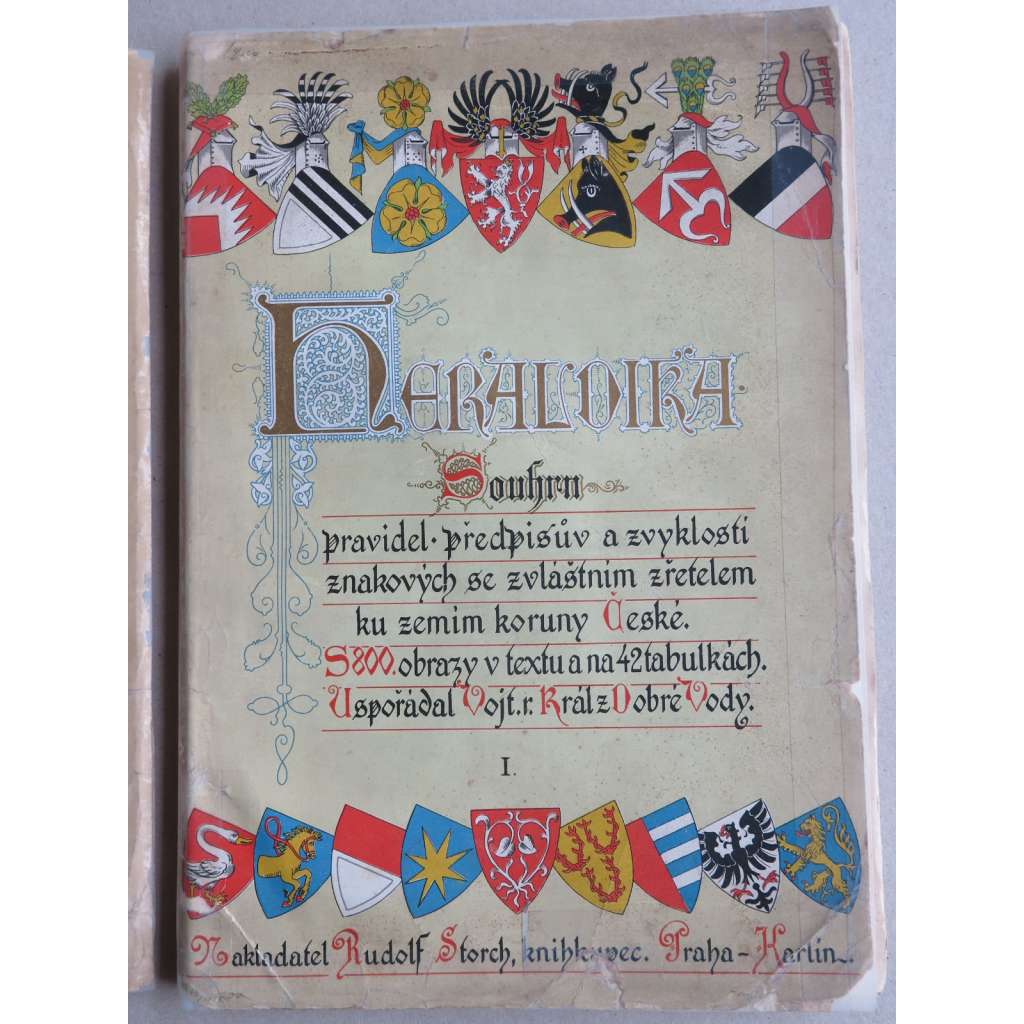 HERALDIKA.
Souhrn
pravidel · předpisův a zvyklostí
znakových se zvláštním zřetelem
ku zemím koruny České.
S 800. obrazy v textu a na 42 tabulkách.
Uspořádal Vojt. r. Král z Dobré Vody.
I.
Nakladatel Rudolf Storch, knihkupec. Praha - Karlín.